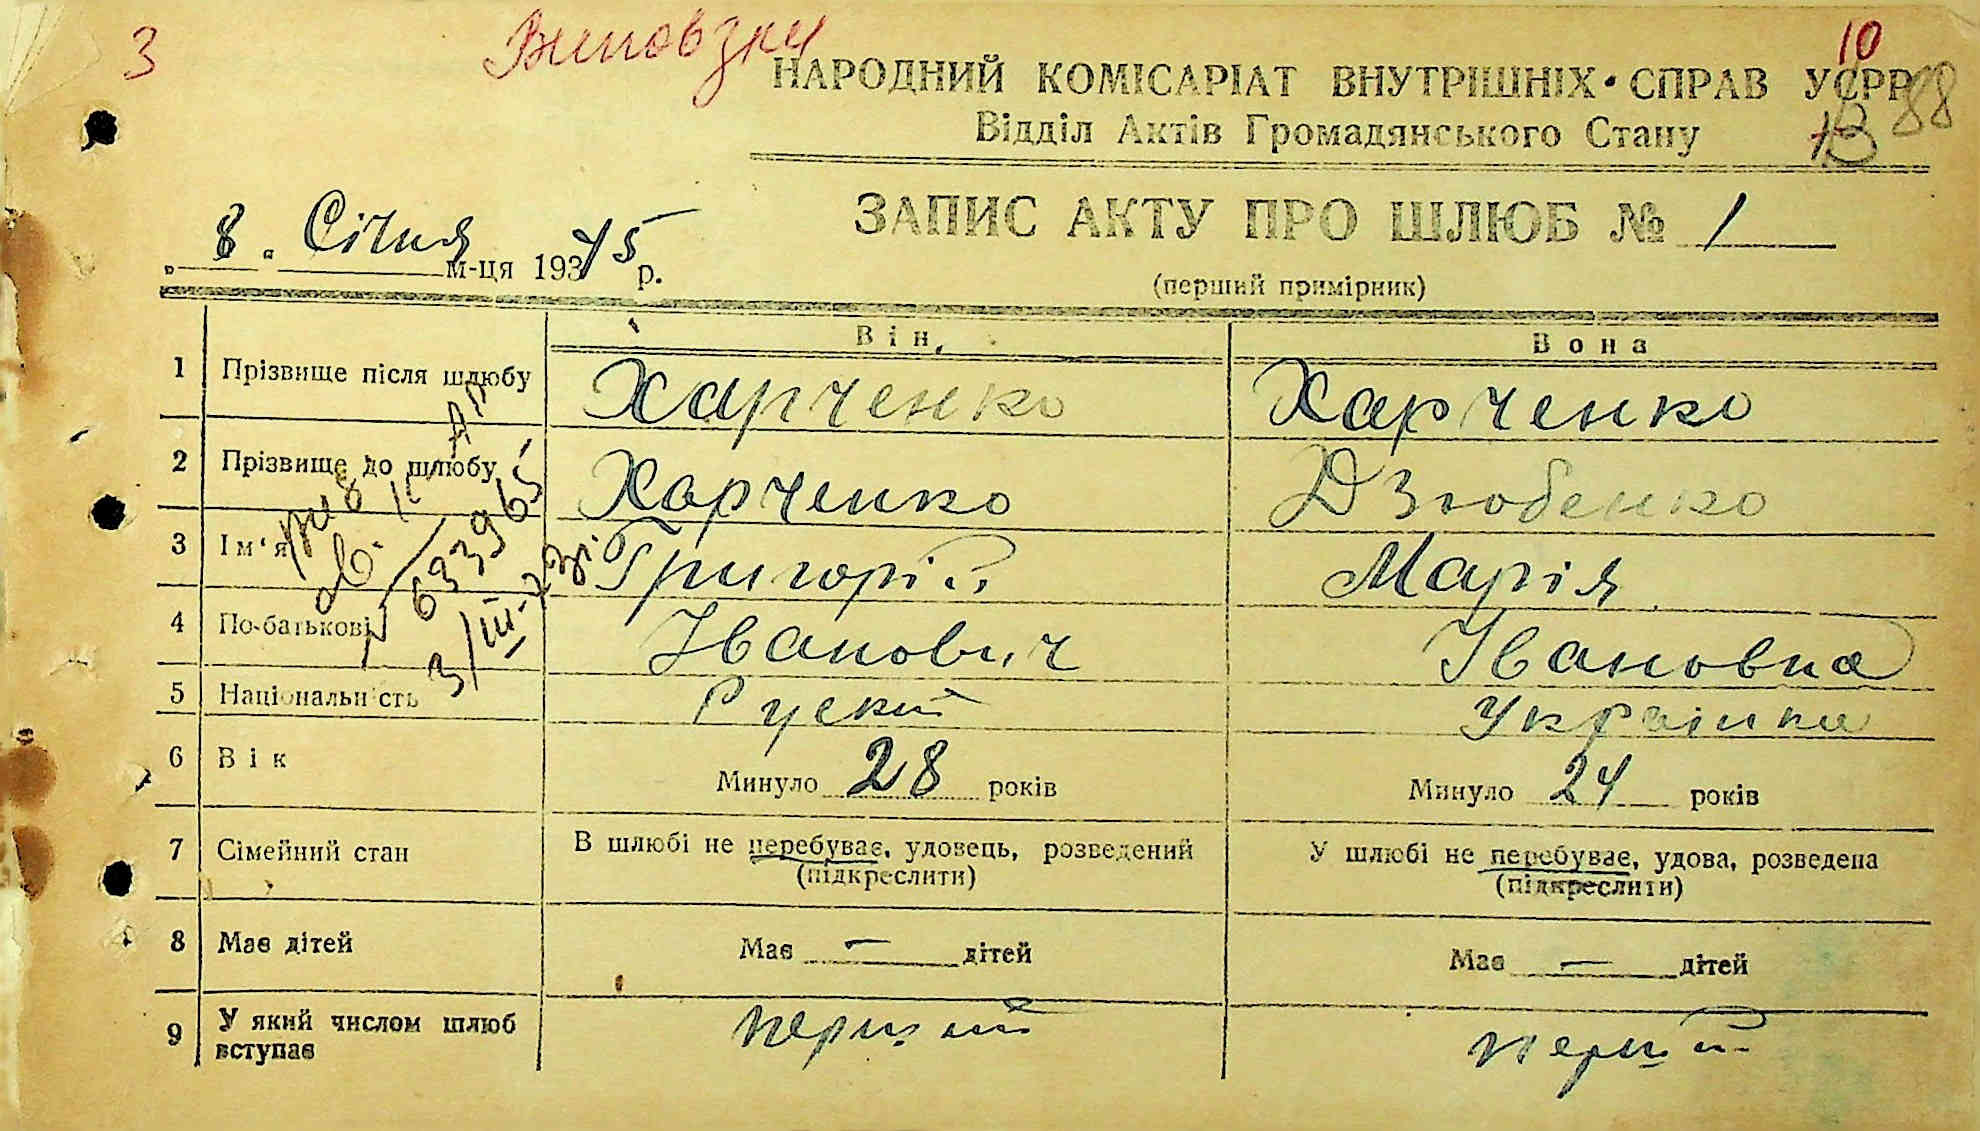 3
10
НАРОДНИЙ КОМІСАРІАТ ВНУТРІШНІХ СПРАВ УСРР
88
Відділ Актів Громадянського Стану
13
ЗАПИС АКТУ ПРО ШЛЮБ № 1
„8" Січня м-ця 193 45 р.
(перший примірник)
Він Вона
1 Прізвище після шлюбу Харченко Харченко
2 Прізвище до шлюбу Харченко Дзюбенко
3 Ім'я Григорій Марія
4 По-батькові Іванович Івановна
5 Національність Руский Українка
№ 633965
3/III-23
6 Вік Минуло 28 років Минуло 24 років
7 Сімейний стан В шлюбі не перебуває, удовець, розведений У шлюбі не перебуває, удова, розведена
(підкреслити) (підкреслити)
8 Має дітей Має — дітей Має — дітей
9 У який числом шлюб перший перший
вступає